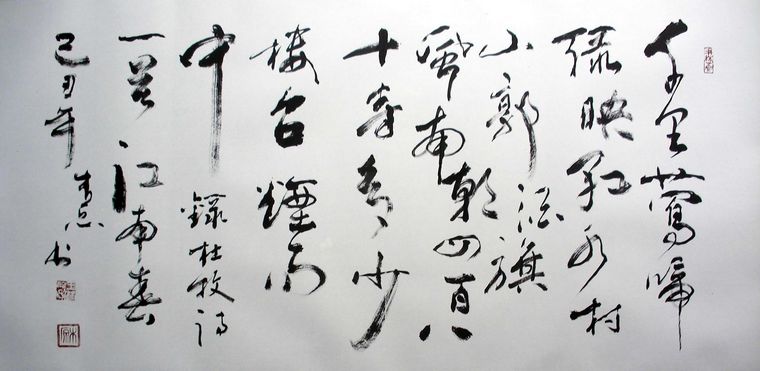 千里鶯啼
綠映紅水村
山郭酒旗
風南朝四百八
十寺多少
樓台煙雨
中 錄杜牧詩
一首江南春
己丑年 书